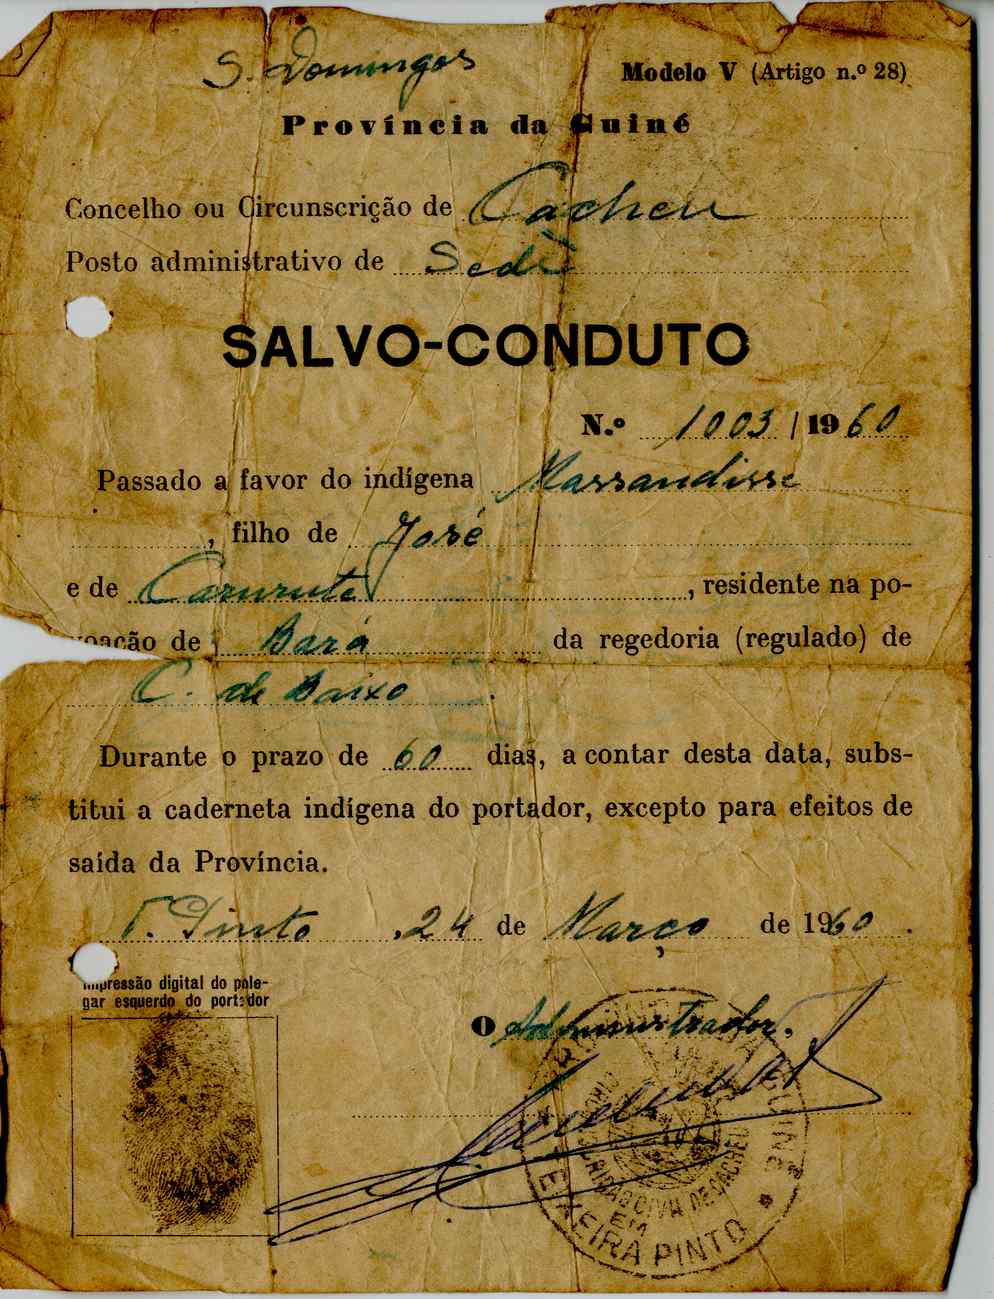 S. Domingos
Modelo V (Artigo n.º 28)
Província da Guiné
Concelho ou Circunscrição de Cacheu
Posto administrativo de Sede
SALVO-CONDUTO
N.º 1003 / 1960
Passado a favor do indígena Massandisse
, filho de José
e de Caruruta, residente na po-
voação de Bará da regedoria (regulado) de
C. de Baixo.
Durante o prazo de 60 dias, a contar desta data, subs-
titui a caderneta indígena do portador, excepto para efeitos de
saída da Província.
T. Pinto, 24 de Março de 1960.
Impressão digital do pole-
gar esquerdo do portador
O Administrador,
GUINÉ
CIVIL DE CACHEU
EM
TEIXEIRA PINTO